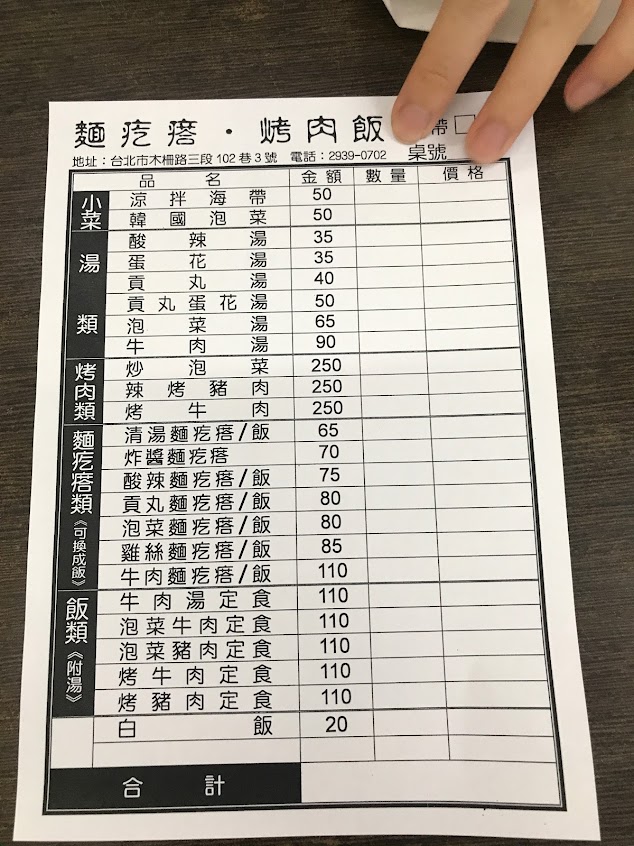 麵疙瘩・烤肉飯 帶□
地址：台北市木柵路三段102巷3號 電話：2939-0702 桌號
品名 金額 數量 價格
小菜
涼拌海帶 50
韓國泡菜 50
湯類
酸辣湯 35
蛋花湯 35
貢丸湯 40
貢丸蛋花湯 50
泡菜湯 65
牛肉湯 90
烤肉類
炒泡菜 250
辣烤豬肉 250
烤牛肉 250
麵疙瘩類《可換成飯》
清湯麵疙瘩/飯 65
炸醬麵疙瘩 70
酸辣麵疙瘩/飯 75
貢丸麵疙瘩/飯 80
泡菜麵疙瘩/飯 80
雞絲麵疙瘩/飯 85
牛肉麵疙瘩/飯 110
飯類《附湯》
牛肉湯定食 110
泡菜牛肉定食 110
泡菜豬肉定食 110
烤牛肉定食 110
烤豬肉定食 110
白飯 20
合計